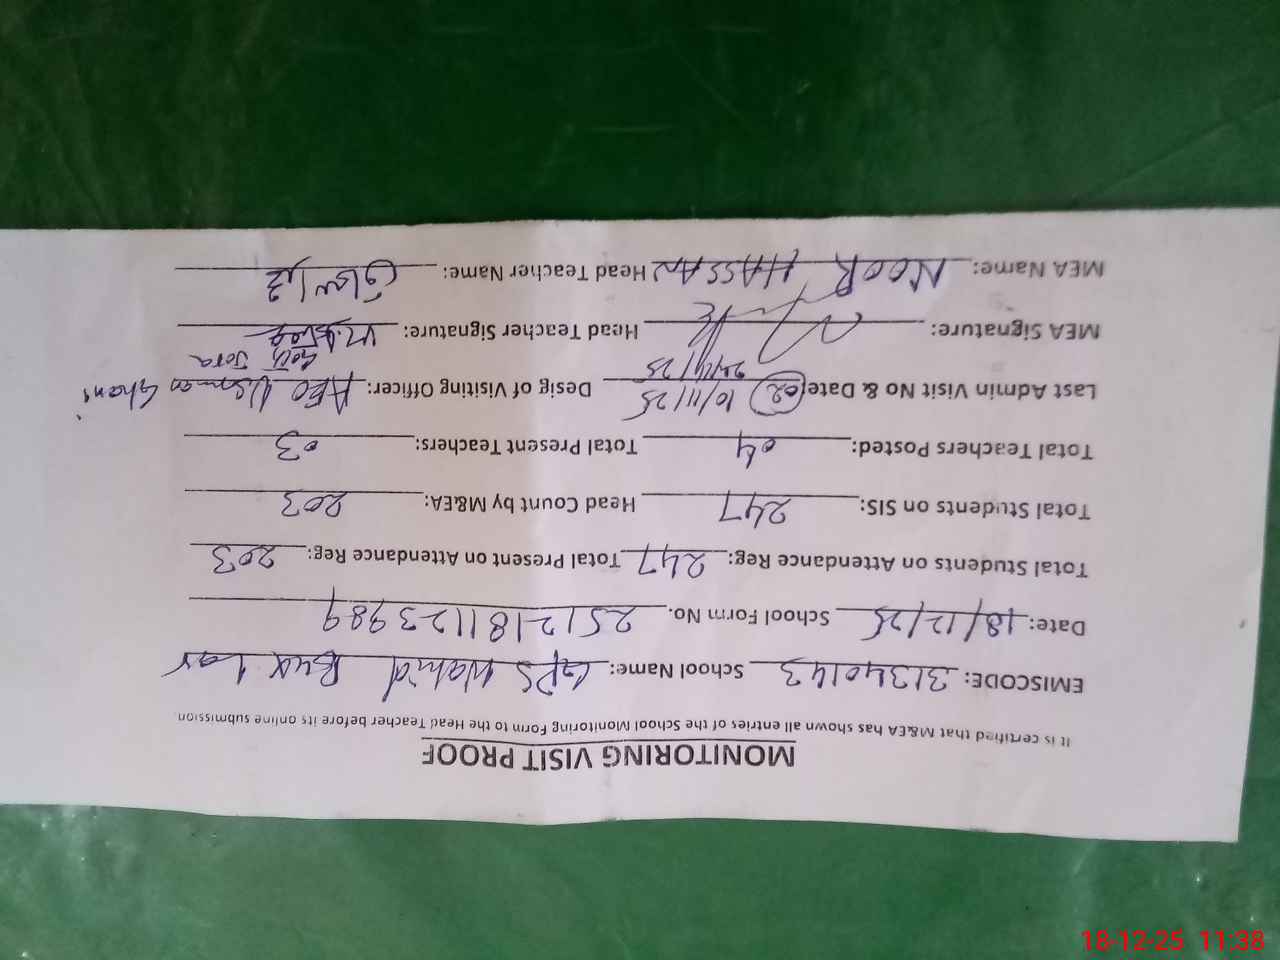 MONITORING VISIT PROOF
It is certified that M&EA has shown all entries of the School Monitoring Form to the Head Teacher before its online submission.
EMISCODE: 31340143 School Name: GPS Wahid Bux Lar
Date: 18/12/25 School Form No. 2512181123989
Total Students on Attendance Reg: 247 Total Present on Attendance Reg: 203
Total Students on SIS: 247 Head Count by M&EA: 203
Total Teachers Posted: 04 Total Present Teachers: 03
Last Admin Visit No & Date: 02 10/11/25 Desig of Visiting Officer: AEO Usman Ghani
MEA Signature: Head Teacher Signature:
MEA Name: NOOR HASSAN Head Teacher Name:
18-12-25 11:38